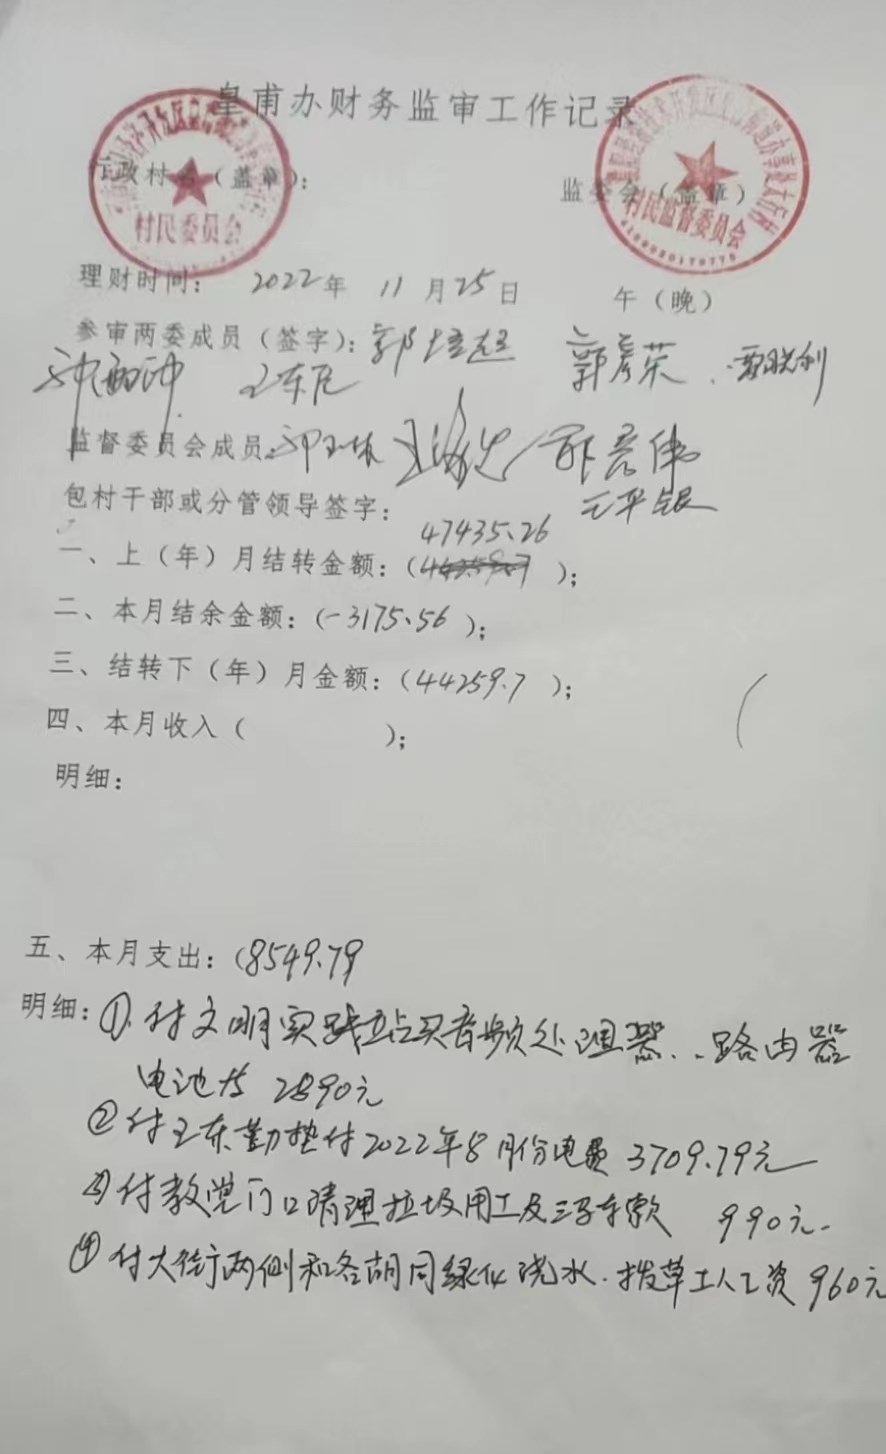 皇甫办财务监审工作记录
行政村名(盖章):
监委会(盖章)
村民委员会
村民监督委员会
理财时间: 2022年 11月25日 午(晚)
参审两委成员(签字): 郭 郭彦荣
王东
监督委员会成员:
包村干部或分管领导签字: 王平银
47435.26
一、上(年)月结转金额:( );
二、本月结余金额:(-3175.56 );
三、结转下(年)月金额:(44259.7 );
四、本月收入( );
明细:
五、本月支出:(8549.79
明细:①付文明实践站买音频处理器、路由器
电池 2890元
②付王东勤垫付2022年8月份电费 3709.79元
③付教堂门口清理垃圾用工及三马车款 990元.
④付大街两侧和各胡同绿化浇水.拔草工人工资 960元